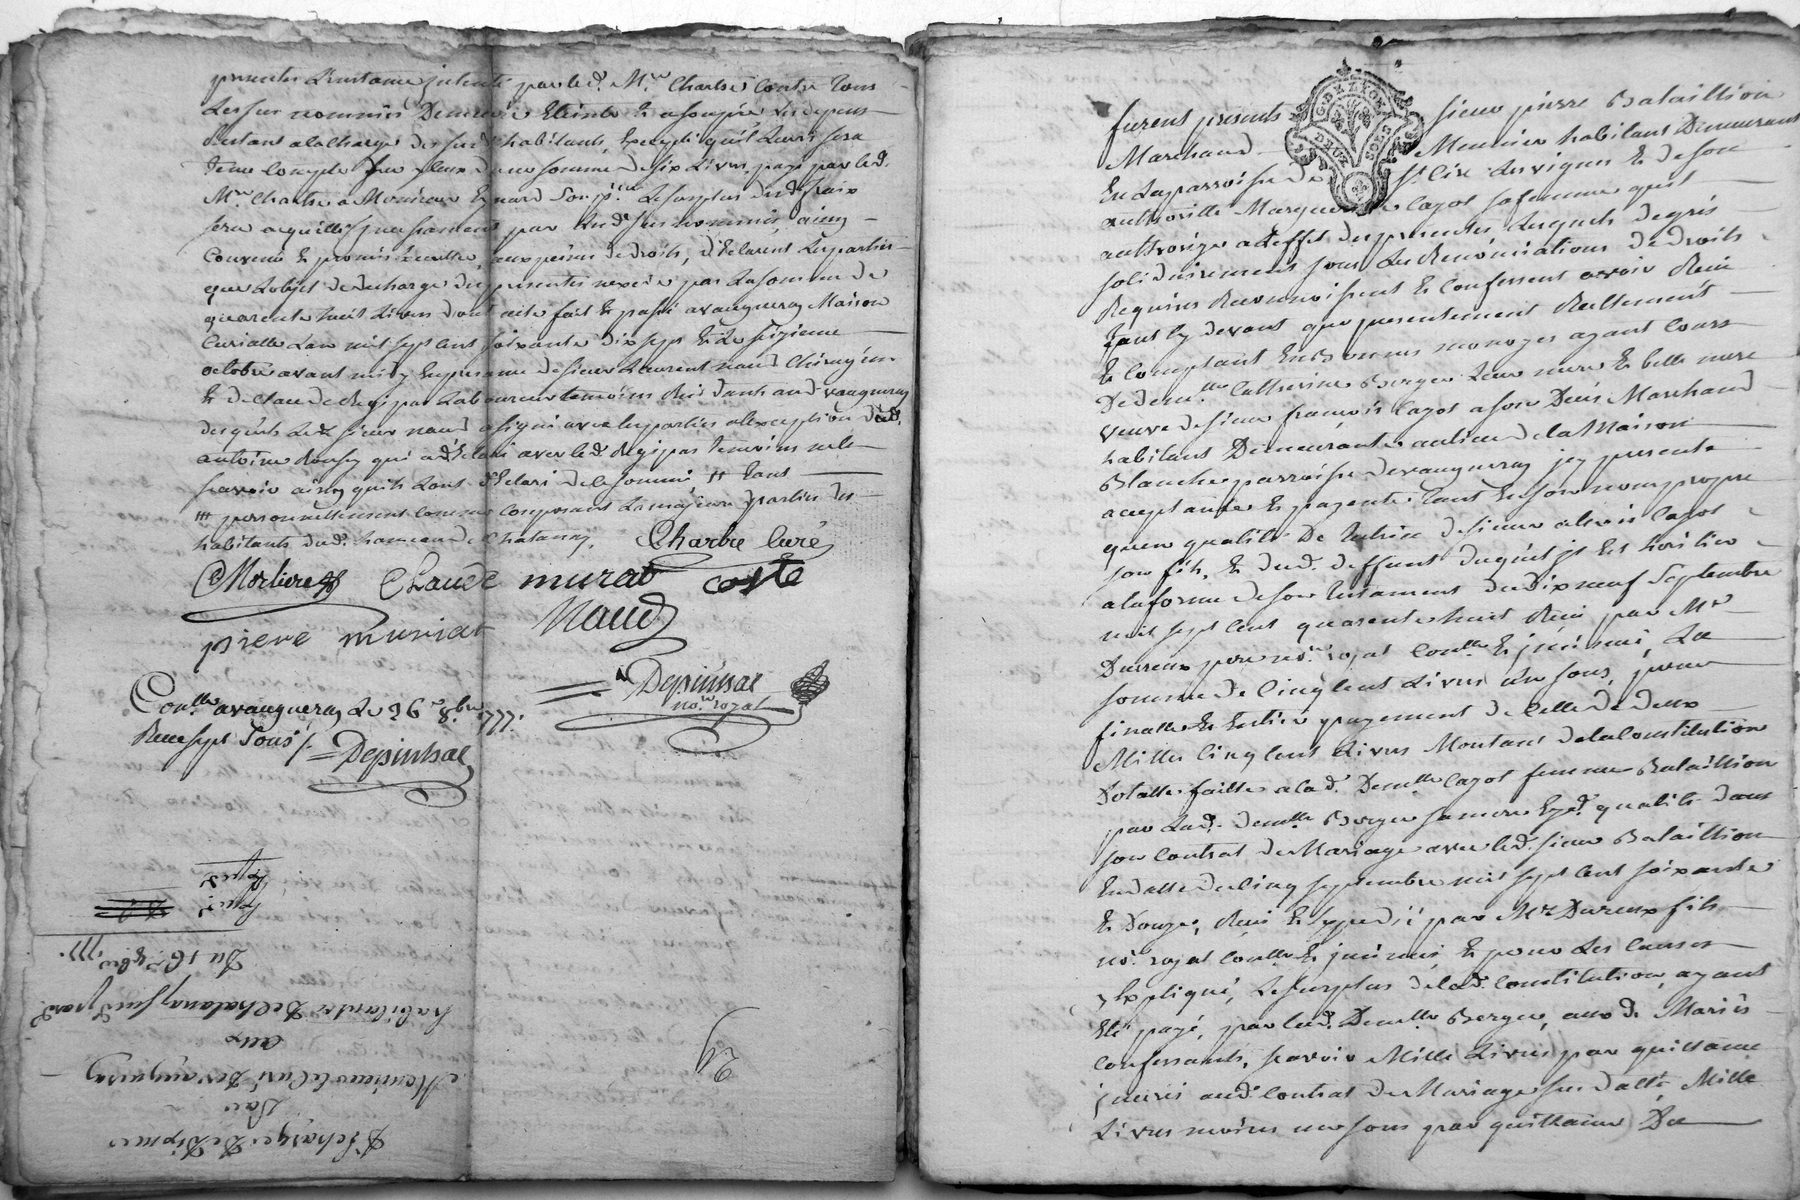 presentes L'instance intenté par led. Mre Charbre Contre tous
Les sus nommés Demeure Eteinte Et assoupie Les depens
Restant a la charge desd habitants, Excepté qu'il Leurs sera
tenu Compte par de une somme de six Livres, payé par led.
Mre Charbre a Monsieur Le surplus desd fraix
sera acquitté par Lesd sus nommés, ainsy
Convenu Et promis aux peines de droits, déclarent Les parties
que L'objet de decharge des presentes n'excede pas La somme de
quarente huit Livres dont acte fait Et passé a vaugneray Maison
Curialle L'an mil sept cent soixante dix sept Et Le seizieme
octobre avant midy En presence de sieur Laurent naud Chirugien
Et de Claude Laboureur temoins Residants aud. vaugneray
desquels Led sieur naud a signé avec Les parties a L'exception dud.
antoine qui a déclaré avec led. temoins ne le
sçavoir ainsy qu'ils L'ont déclaré de ce sommé ++ tant
+++ personnellement Comme Composant La majeure partie des
habitants dud. hameau de Chatanay. Charbre Curé
Morliere Claude murat coste
piere muriat Naud
Depinhac
no.re royal
Con.llé a vaugneray Le 26 8.bre 1777.
Reçu sept sous Depinhac
Décharge De Dixmes
Par
Monsieur le Curé De vaugneray
aux
habitants De Chatanay
Du 16 8bre 1777.
29
G. DE LYON
DEUX SOLS
furent presents sieur pierre Bataillion
Marchand Meunier habitant Demeurant
En La parroisse de St Cir Les vignes Et de son
authorité Marguerite Cagot sa femme quil
authorize a L'effet des presentes, Lesquels de grés
solidairement sous Les Renonciations de droits
Requises Reconnoissent Et Confessent avoir Reçu
tant cy devant que presentement Reellement
Et Comptant En Bonnes monoyes ayant Cours
De dem.lle Catherine Berger Leur mere Et belle mere
veuve de sieur françois Cagot Marchand
habitant Demeurante au lieu de la Maison
Blanche parroisse de vaugneray icy presente
acceptante Et payante tant En son nom propre
qu'en qualité De tutrice de sieur Cagot
son fils, Et dud. deffunt duquel il Est héritier
a la forme de son testament du dix neuf Septembre
mil sept cent quarente huit Reçu par Mre
Dureux pere no.re royal Con.llé Et jnsinué, La
somme de Cinq Cent Livres un sous, pour
finalle Et Entier payement de Celle de deux
Milles Cinq Cent Livres Montant de la Constitution
Dotalle faitte a lad. Dem.lle Cagot femme Bataillion
par Lad. dem.lle Berger sa mere Esd. qualité dans
son Contrat de Mariage avec led. sieur Bataillion
En datte du Cinq septembre mil sept cent soixante
Et Douze, Reçu Et Expedié par Mre Dureux fils
no. royal Con.llé Et jnsinué, Et pour Les Causes
y Expliqué, Le surplus de lad. Constitution ayant
Eté payé, par lad. Dem.lle Berger, aux d. Mariés
Confessants, sçavoir Mille Livres par quittance
jnseré aud. Contrat de Mariage sus datté Mille
Livres moins un sous par quittance Du